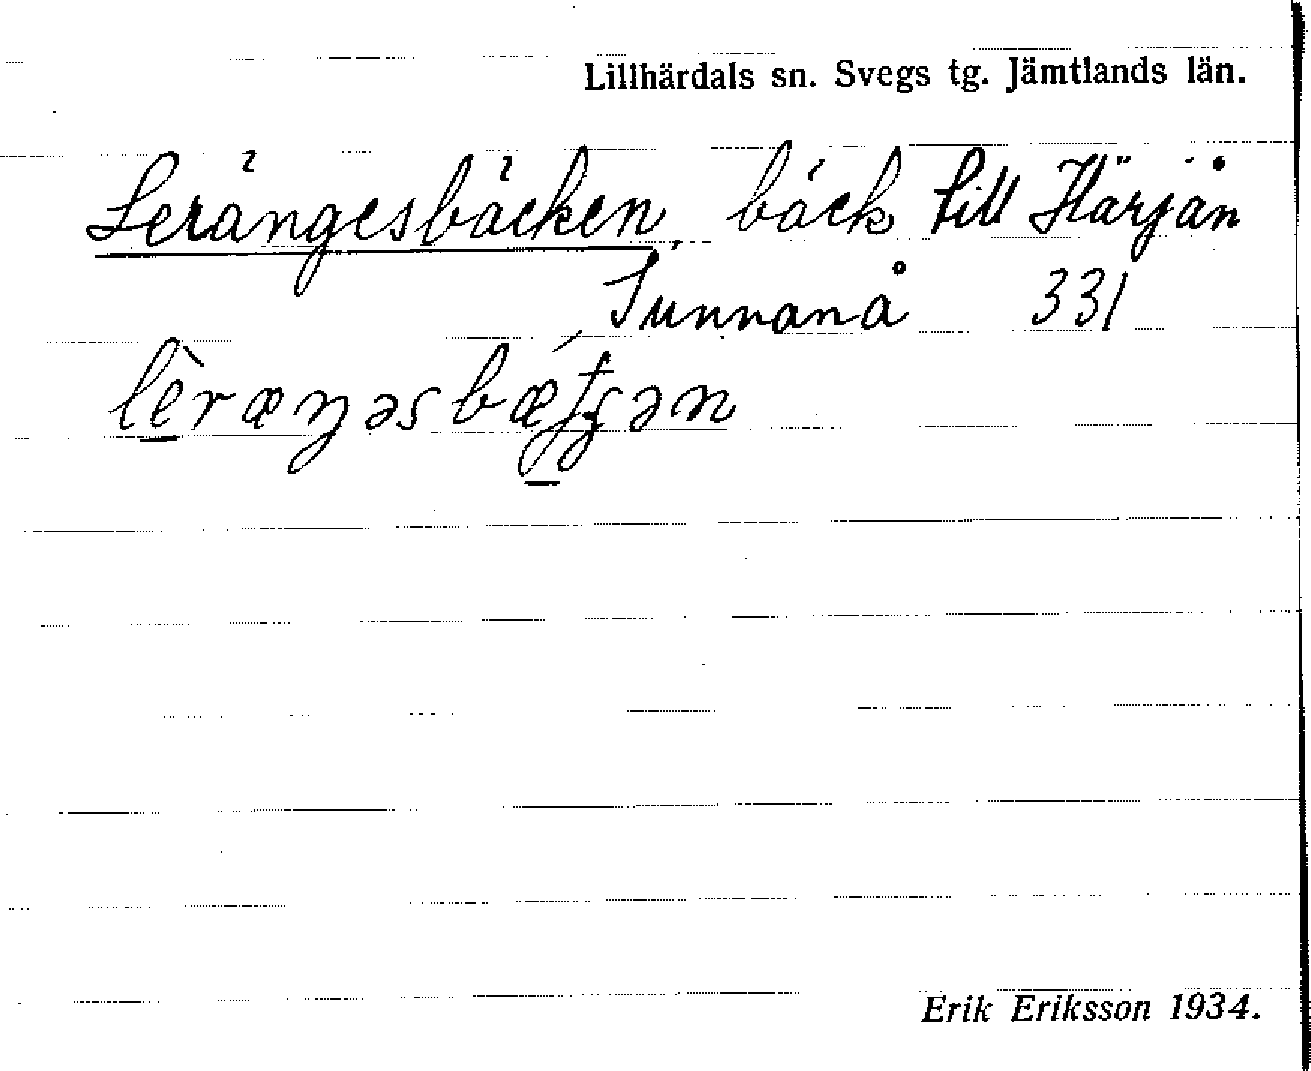 Lillhärdals sn. Svegs tg. Jämtlands län.
Lerängesbäcken, bäck till Härjån
Sunnanå 331
lèræŋəsbǽt̯ʂən
Erik Eriksson 1934.